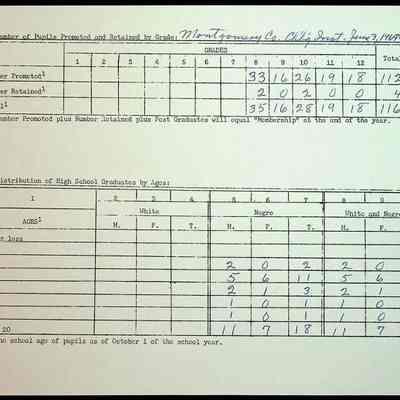 umber of Pupils Promoted and Retained by Grade: Montgomery Co. June 3, 1964
GRADES
1 2 3 4 5 6 7 8 9 10 11 12 Total
er Promoted¹ 33 16 26 19 18 112
er Retained¹ 2 0 2 0 0 4
l¹ 35 16 28 19 18 116
umber Promoted plus Number Retained plus Post Graduates will equal "Membership" at the end of the year.
istribution of High School Graduates by Ages:
1 2 3 4 5 6 7 8 9
White Negro White and Negro
AGES¹ M. F. T. M. F. T. M. F.
r less
2 0 2 2 0
5 6 11 5 6
2 1 3 2 1
1 0 1 1 0
1 0 1 1 0
20 11 7 18 11 7
he school age of pupils as of October 1 of the school year.